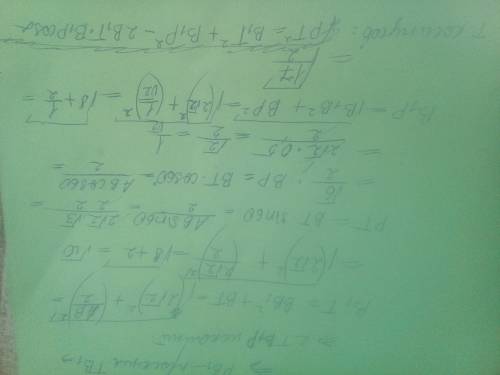 ⇒ PB₁ - проекция TB₁ ⇒
⇒ ∠TB₁P искомый
B₁T = √(BB₁² + BT²) = √((2√2)² + (AB/2)²) =
= √((2√2)² + (2√2/2)²) = √(8+2) = √10
PT = BT sin60 = AB sin60/2 = 2√2 √3/(2·2) =
= √6/2 . BP = BT·cos60° = AB cos60/2 =
= 2√2·0,5/2 = √2/2 = 1/√2
B₁P = √(B₁B² + BP²) = √((2√2)² + (1/√2)²) = √(8 + 1/2) =
= √(17/2)
Т. косинусов: PT² = B₁T² + B₁P² - 2B₁T·B₁P cosα